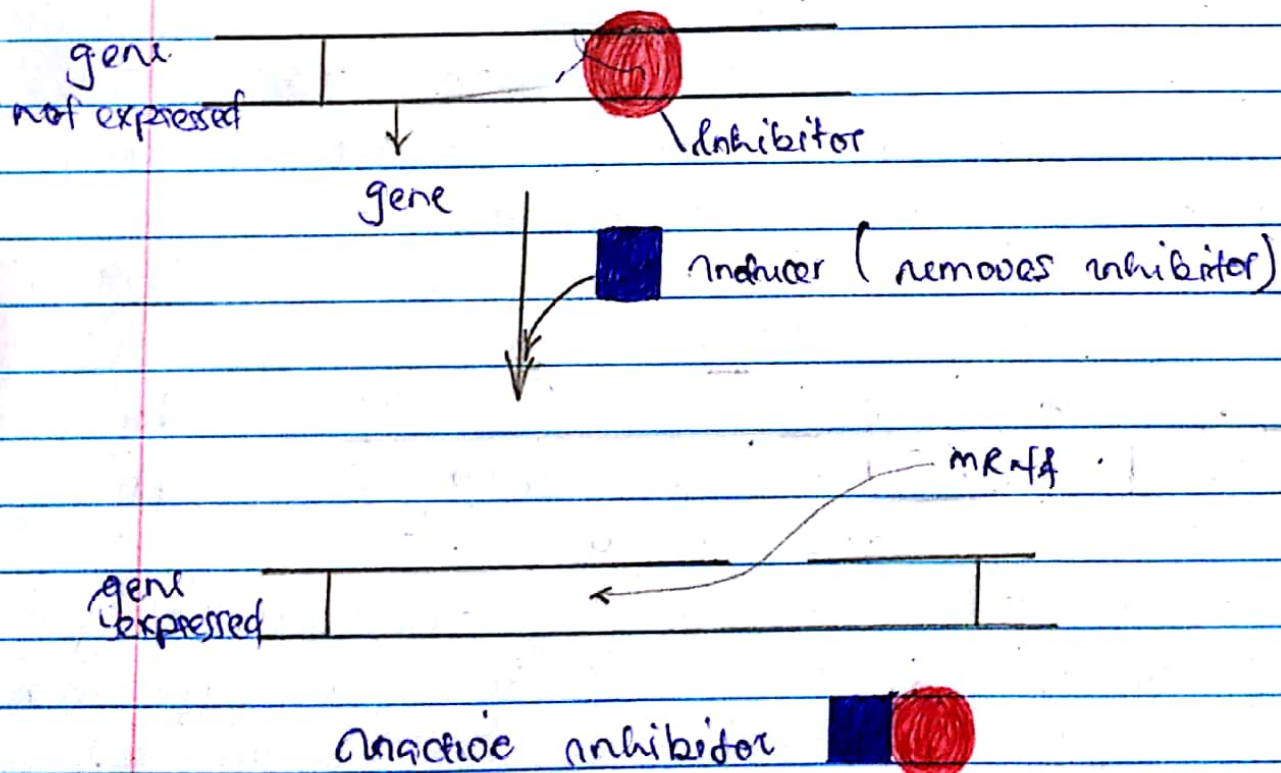 gene
not expressed
Inhibitor
gene
inducer (removes inhibitor)
mRNA
gene
expressed
inactive inhibitor